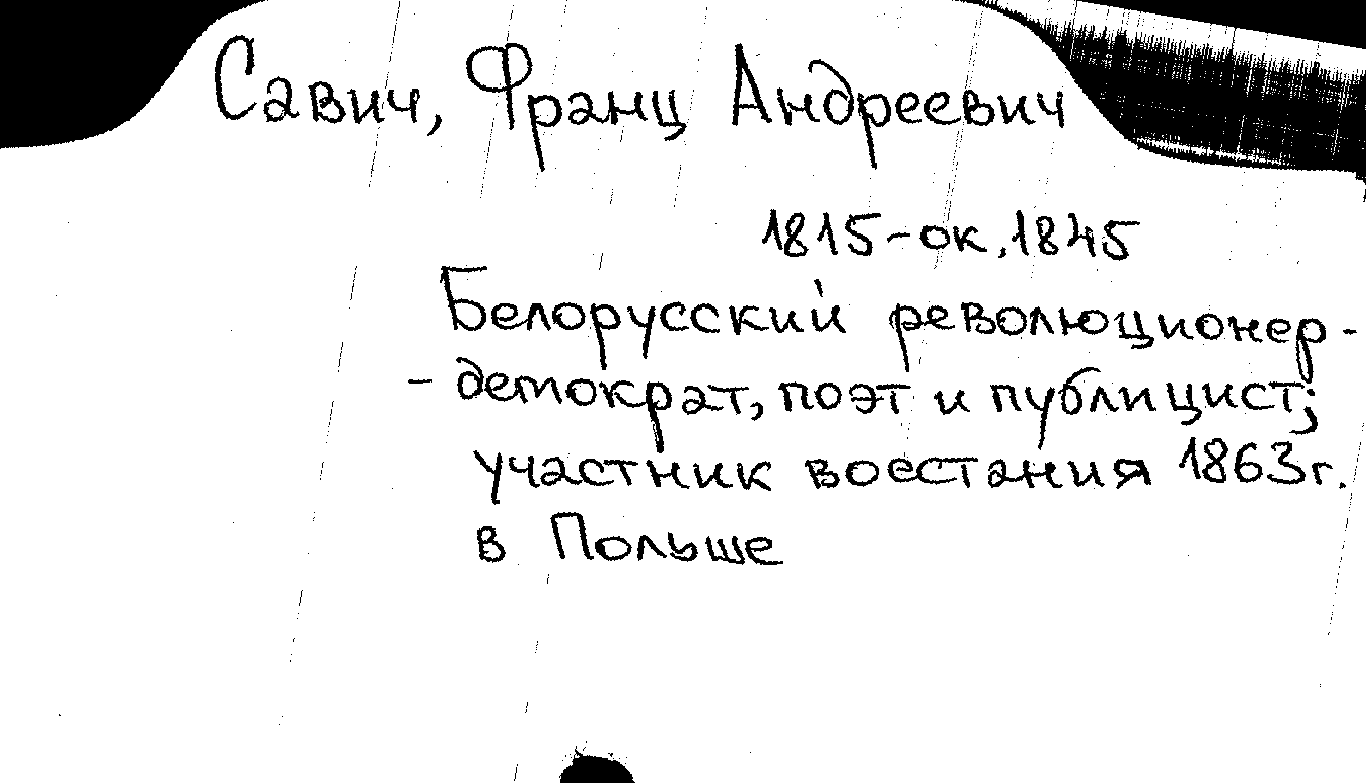 Савич, Франц Андреевич
1815-ок.1845
Белорусский революционер-
- демократ, поэт и публицист;
участник восстания 1863г.
в Польше